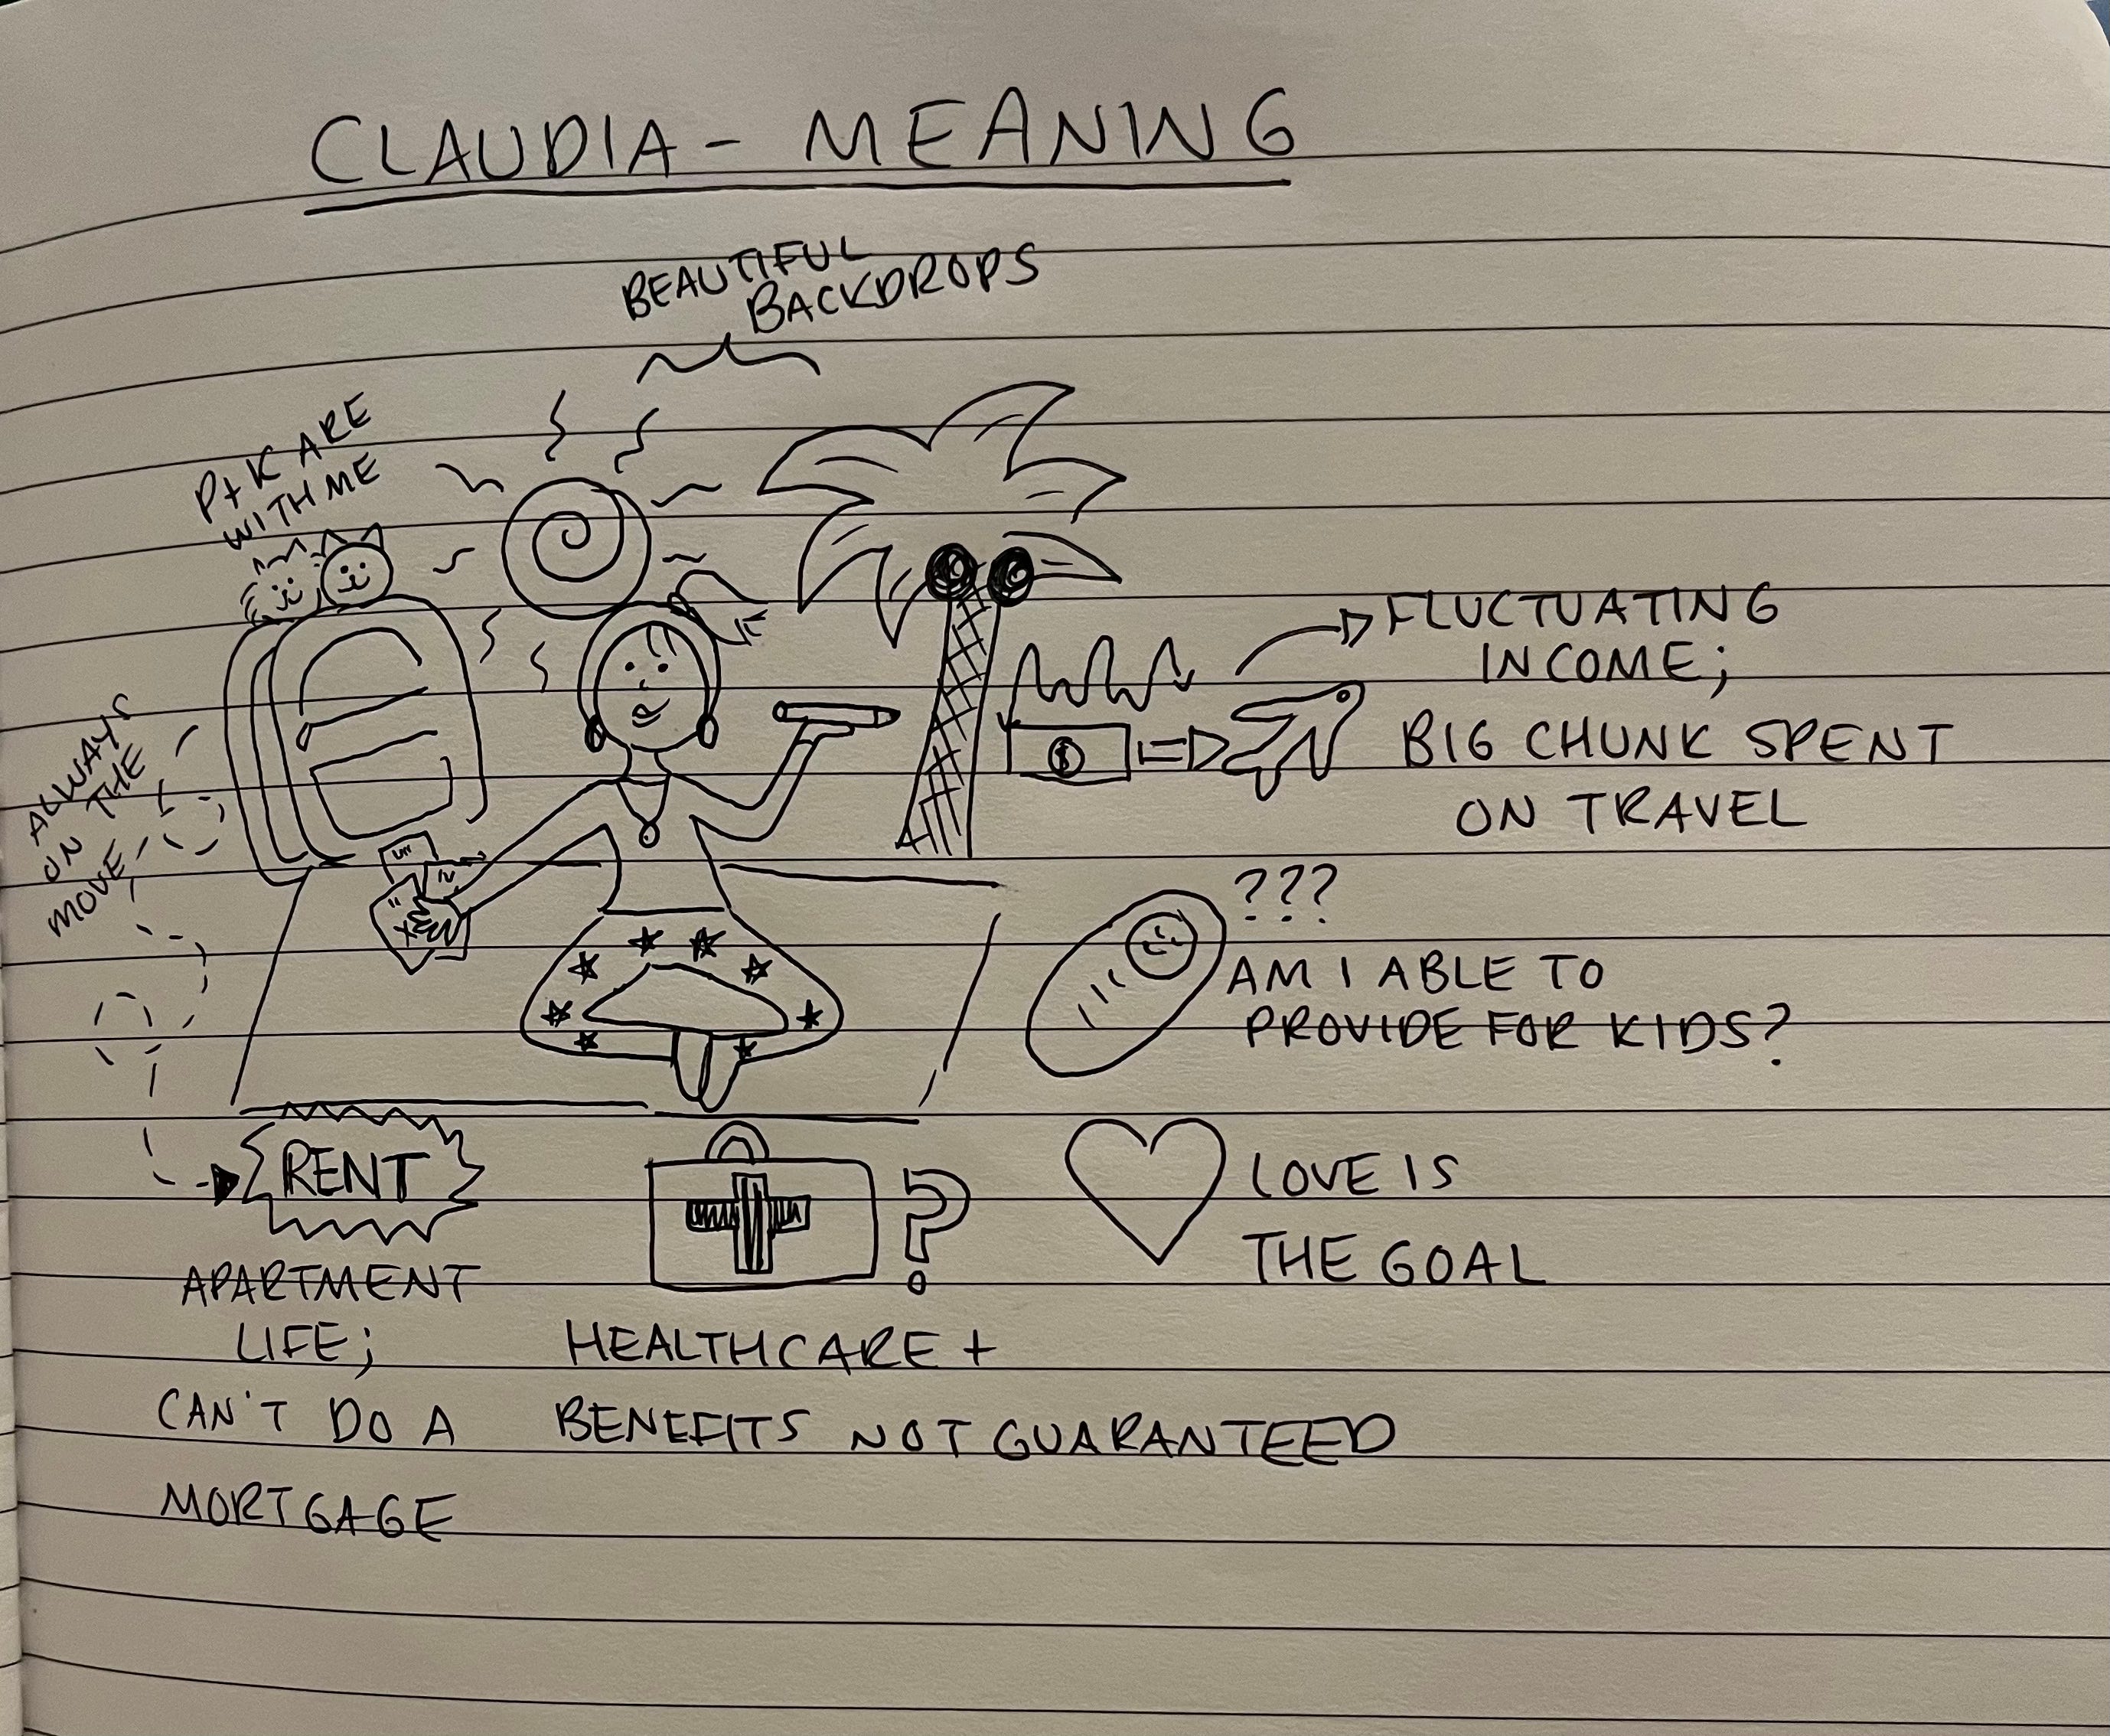 CLAUDIA - MEANING
BEAUTIFUL
BACKDROPS
P+K ARE
WITH ME
ALWAYS
ON THE
MOVE
$
FLUCTUATING
INCOME;
BIG CHUNK SPENT
ON TRAVEL
???
AM I ABLE TO
PROVIDE FOR KIDS?
RENT
APARTMENT
LIFE;
CAN'T DO A
MORTGAGE
?
HEALTHCARE +
BENEFITS NOT GUARANTEED
LOVE IS
THE GOAL